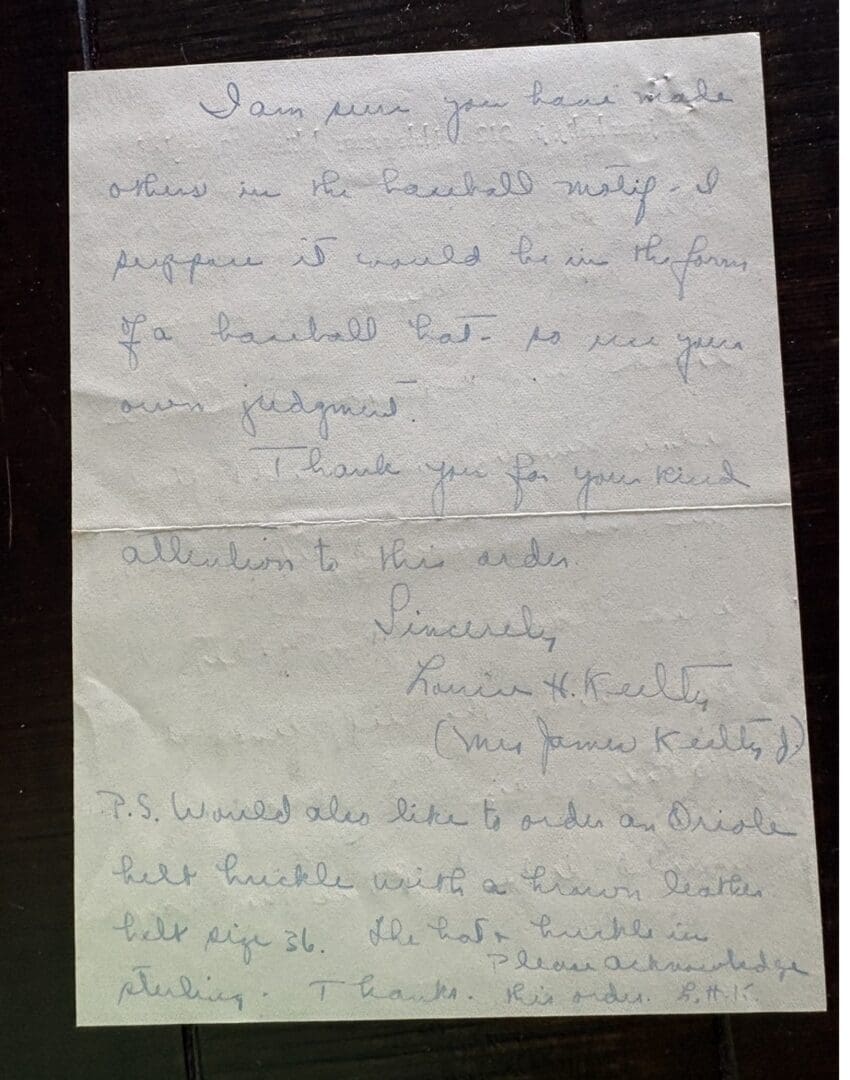 I am sure you have made
others in the baseball motif - I
suppose it would be in the form
of a baseball bat - so use your
own judgment.
Thank you for your kind
attention to this order.
Sincerely,
Louise H. Keelty
(Mrs James Keelty Jr)
P.S. Would also like to order an Oriole
belt buckle with a brown leather
belt size 36. The bat + buckle in
sterling. Thanks. Please acknowledge
this order. L.H.K.